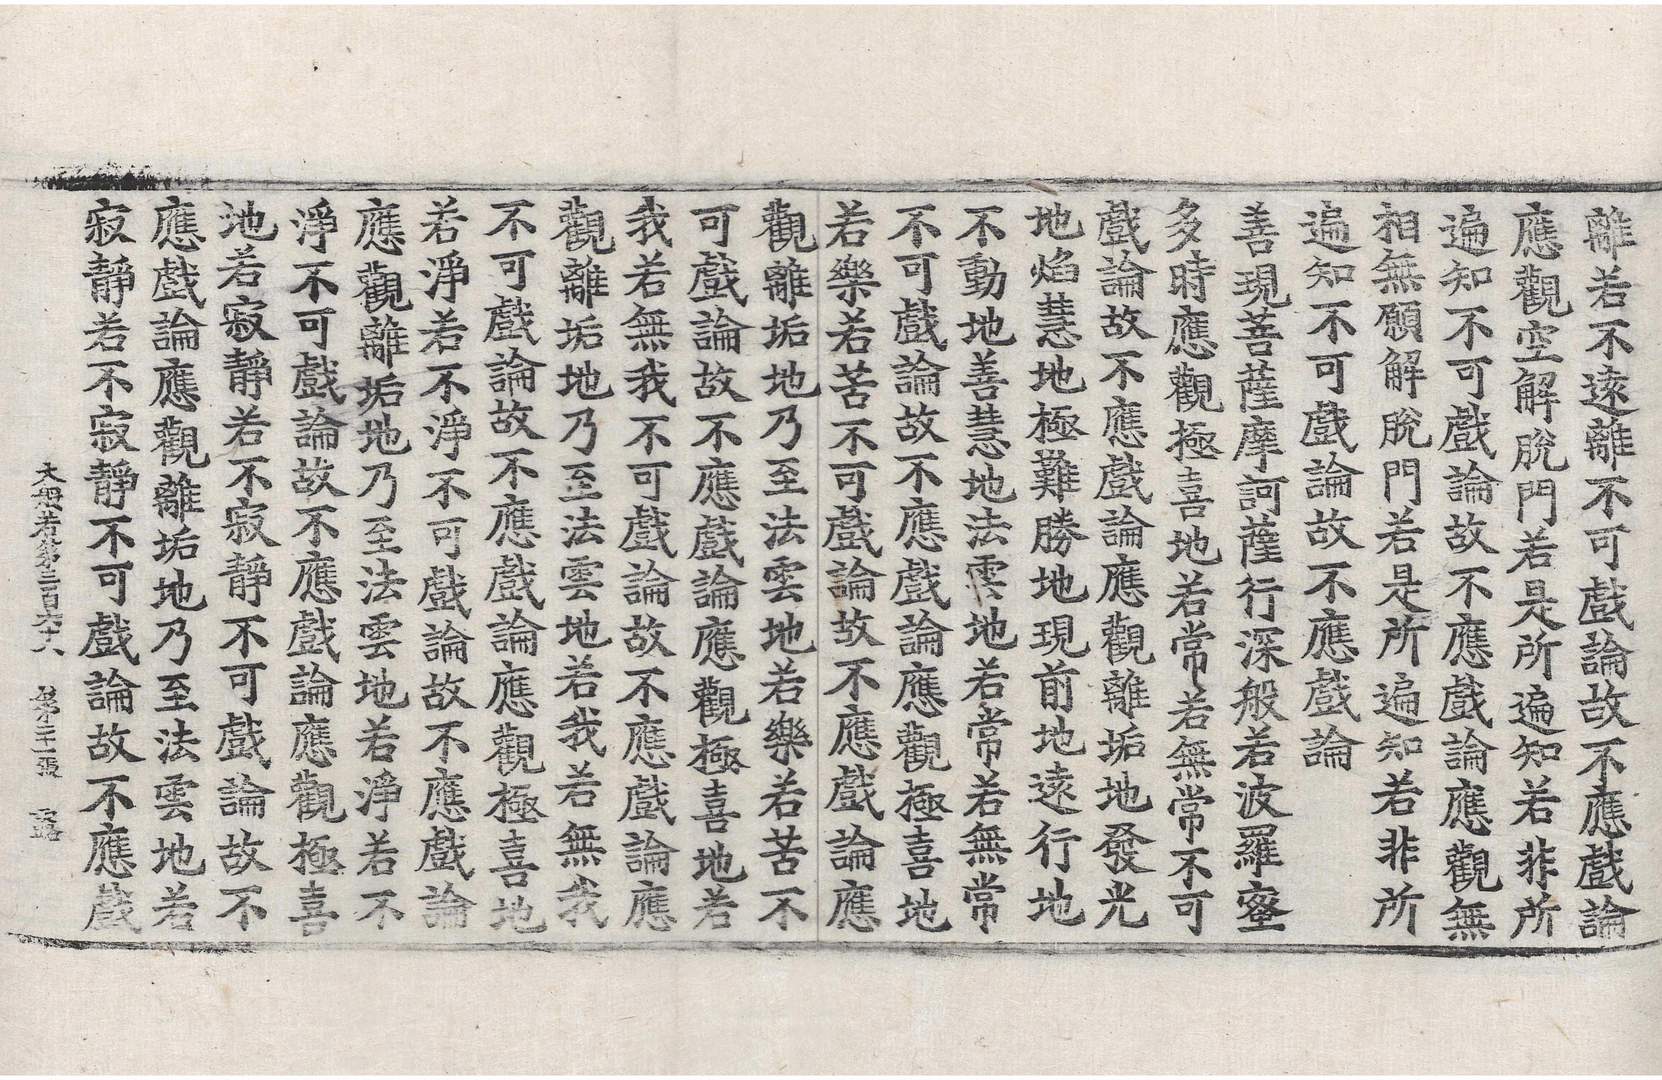 離若不遠離不可戲論故不應戲論
應觀空解脫門若是所遍知若非所
遍知不可戲論故不應戲論應觀無
相無願解脫門若是所遍知若非所
遍知不可戲論故不應戲論
善現菩薩摩訶薩行深般若波羅蜜
多時應觀極喜地若常若無常不可
戲論故不應戲論應觀離垢地發光
地焰慧地極難勝地現前地遠行地
不動地善慧地法雲地若常若無常
不可戲論故不應戲論應觀極喜地
若樂若苦不可戲論故不應戲論應
觀離垢地乃至法雲地若樂若苦不
可戲論故不應戲論應觀極喜地若
我若無我不可戲論故不應戲論應
觀離垢地乃至法雲地若我若無我
不可戲論故不應戲論應觀極喜地
若淨若不淨不可戲論故不應戲論
應觀離垢地乃至法雲地若淨若不
淨不可戲論故不應戲論應觀極喜
地若寂靜若不寂靜不可戲論故不
應戲論應觀離垢地乃至法雲地若
寂靜若不寂靜不可戲論故不應戲
大般若第三百六十六 第二十一張